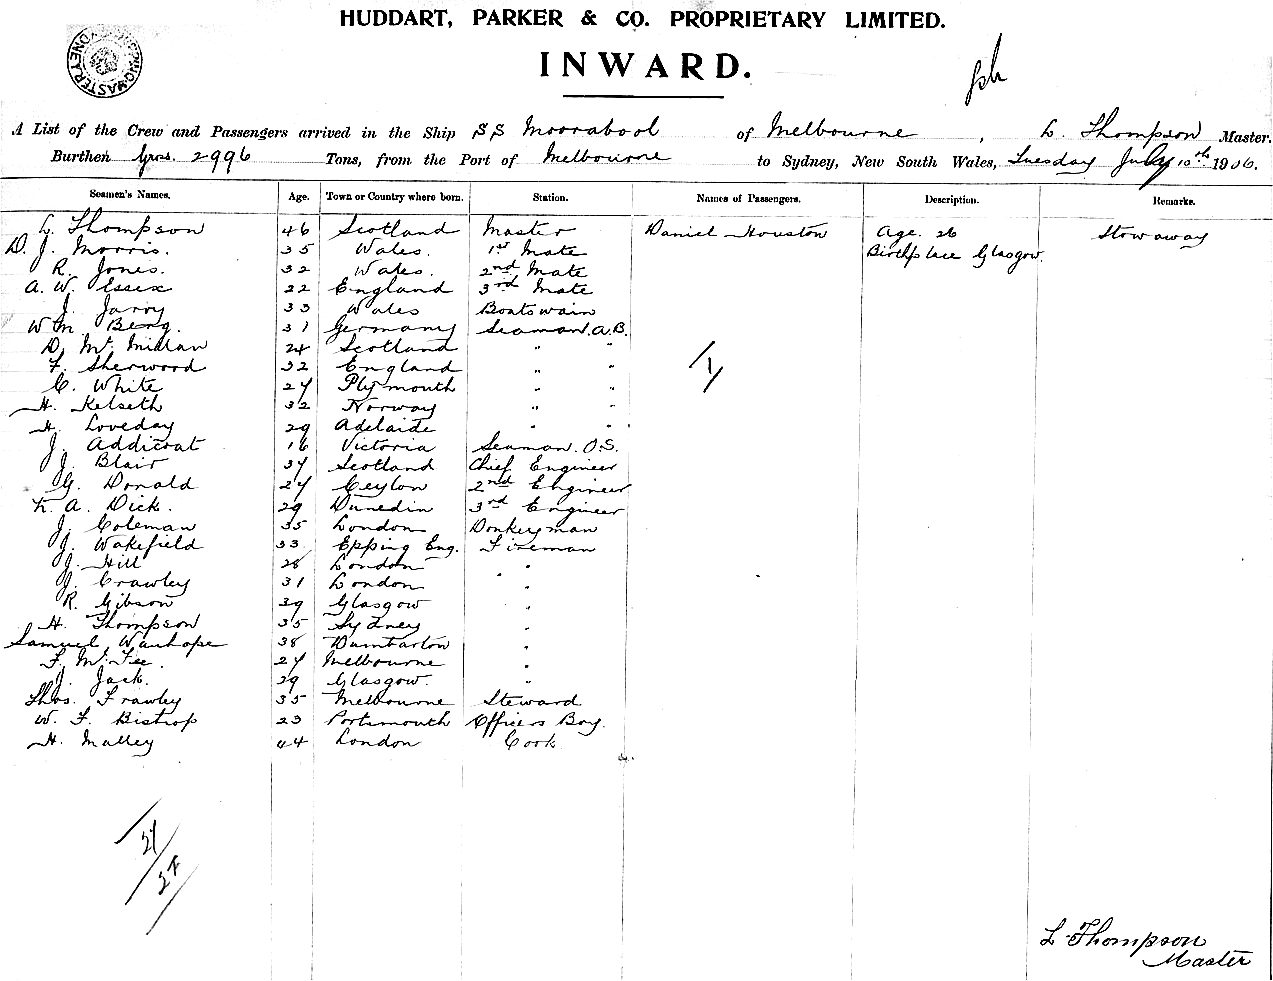 HUDDART, PARKER & CO. PROPRIETARY LIMITED.
INWARD.
A List of the Crew and Passengers arrived in the Ship SS Moorabool of Melbourne, L. Thompson Master.
Burthen Gros. 2996 Tons, from the Port of Melbourne to Sydney, New South Wales, Tuesday July 10th 1906.
Seamen's Names. Age. Town or Country where born. Station. Names of Passengers. Description. Remarks.
L. Thompson 46 Scotland Master Daniel Houston Age. 26 Stowaway
D. J. Morris. 35 Wales. 1st Mate Birthplace Glasgow.
R. Jones. 32 Wales. 2nd Mate
A. W. Essex 22 England 3rd Mate
J. Jarry 33 Wales Boatswain
Wm. Berg. 31 Germany Seaman. A.B.
D. Mc. Millan 24 Scotland " "
F. Sherwood 32 England " "
C. White 27 Plymouth " "
H. Kelseth 32 Norway " "
H. Loveday 29 Adelaide " "
J. Addicoat 16 Victoria Seaman. O.S.
J. Blair 37 Scotland Chief Engineer
G. Donald 27 Ceylon 2nd Engineer
K. A. Dick. 29 Dunedin 3rd Engineer
J. Coleman 35 London Donkeyman
J. Wakefield 33 Epping Eng. Fireman
J. Hill 28 London "
J. Crawley 31 London "
R. Gibson 39 Glasgow "
H. Thompson 35 Sydney "
Samuel Wauhope 38 Dumbarton "
F. Mc. Fee. 27 Melbourne "
J. Jack. 29 Glasgow. "
Thos. Frawley 35 Melbourne Steward
W. F. Bistrop 23 Portsmouth Officers Boy.
H. Malley 44 London Cook
27
27
L Thompson
Master